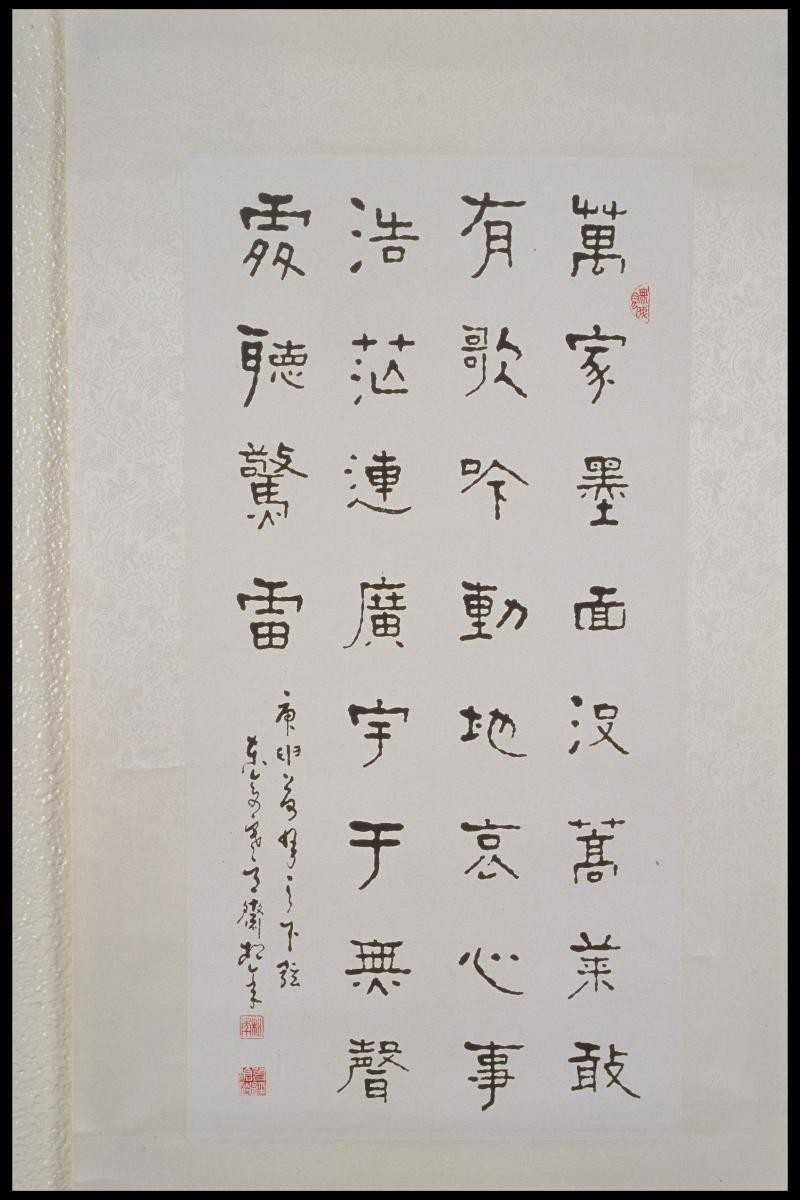 萬家墨面没蒿萊敢
有歌吟動地哀心事
浩茫連廣宇于無聲
處聽驚雷
庚申之下弦